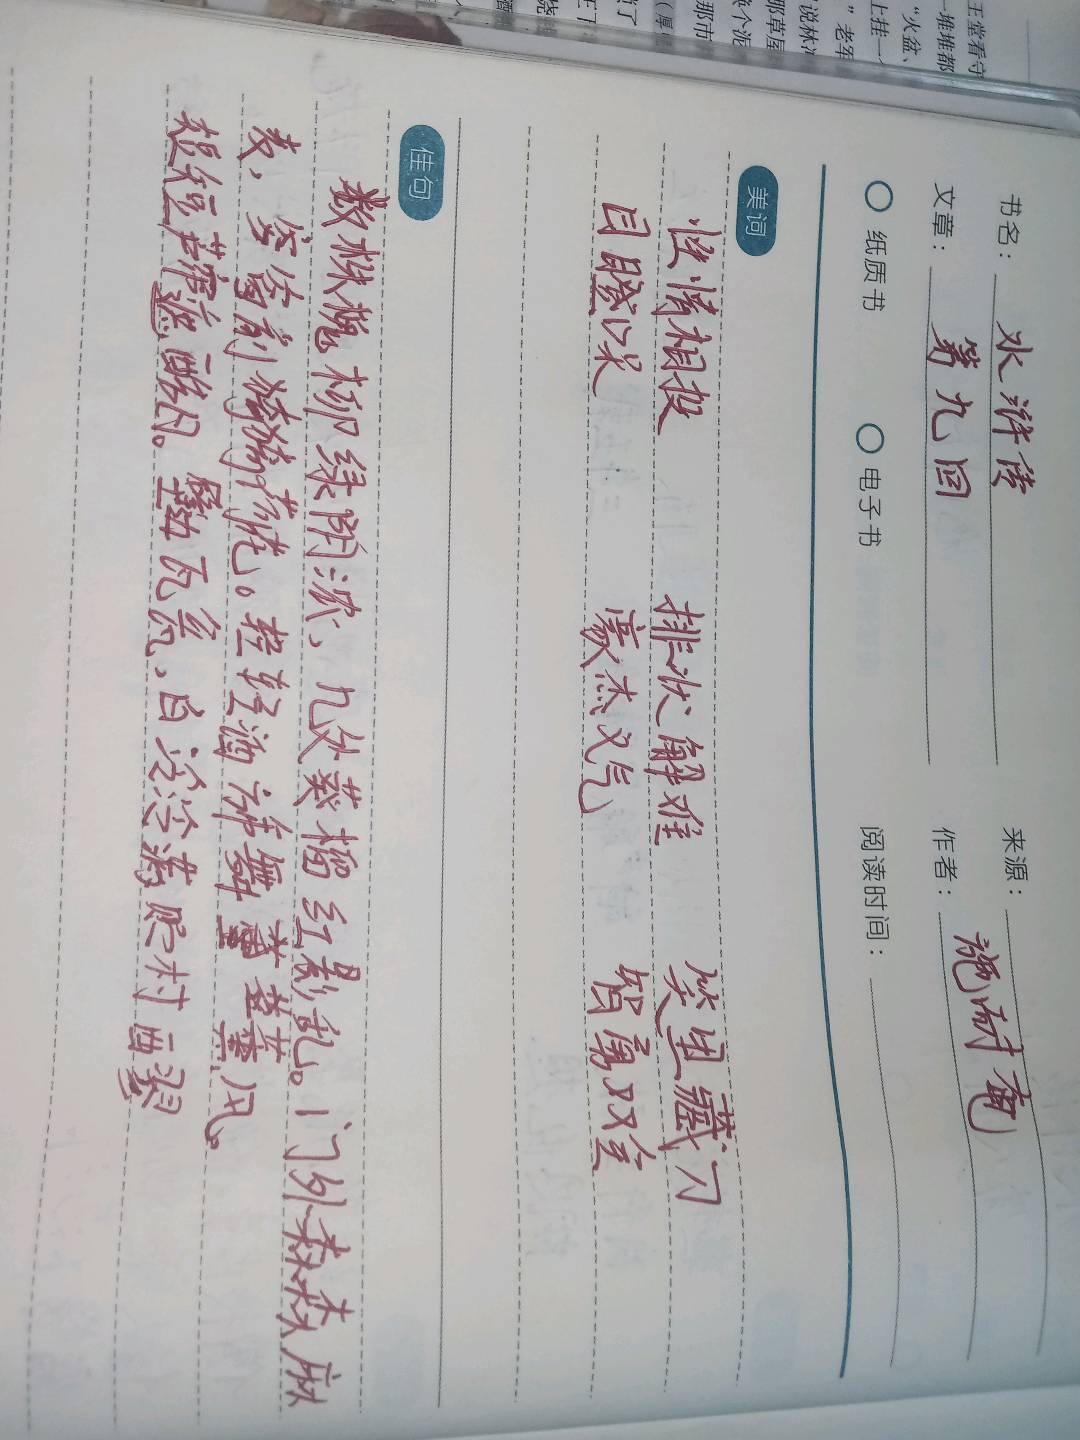 书名：水浒传 来源：
文章：第九回 作者：施耐庵
纸质书 电子书 阅读时间：
美词
性情相投 排忧解难 笑里藏刀
目瞪口呆 豪杰义气 智勇双全
佳句
数株槐柳绿阴浓，几处葵榴红影乱。门外森森麻
麦，窗前猗猗荷花。轻轻酒旆舞薰风。
短短芦帘遮酷日。壁边瓦瓮，白泠泠满贮村醪
王堂看守
一堆堆都
“火盆、
上挂一
”老军
说林
那草屋
那市